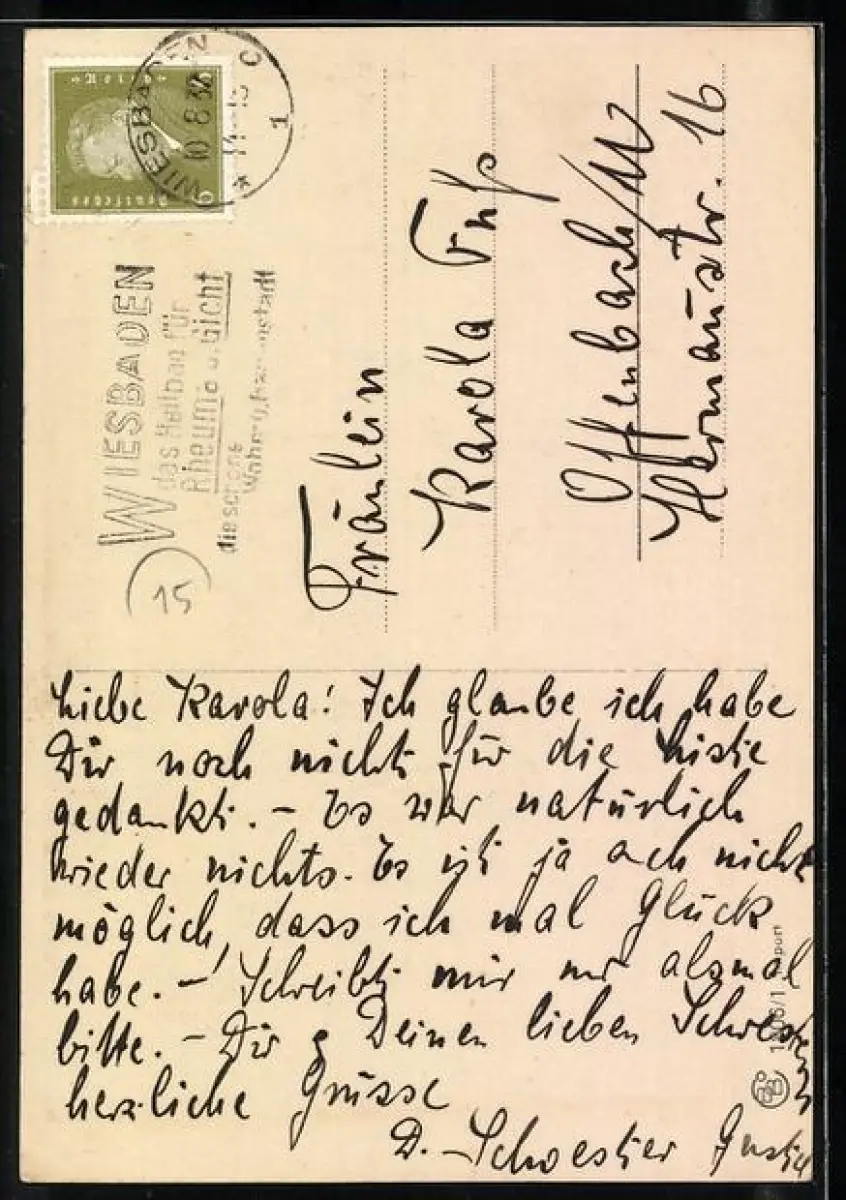 WIESBADEN
10.8.32
Deutsches
6
WIESBADEN
das Heilbad für
Rheuma u. Gicht
die schöne
15
Fräulein
Karola
Offenbach/M
Hermanstr. 16
Liebe Karola! Ich glaube ich habe
Dir noch nichts für die Liste
gedankt. – Es war natürlich
wieder nichts. Es ist ja auch nicht
möglich, dass ich mal Glück
habe. – Schreibt mir nur alsmal
bitte. – Dir & Deinen lieben Schwestern
herzliche Grüsse
D. Schwester Gustel